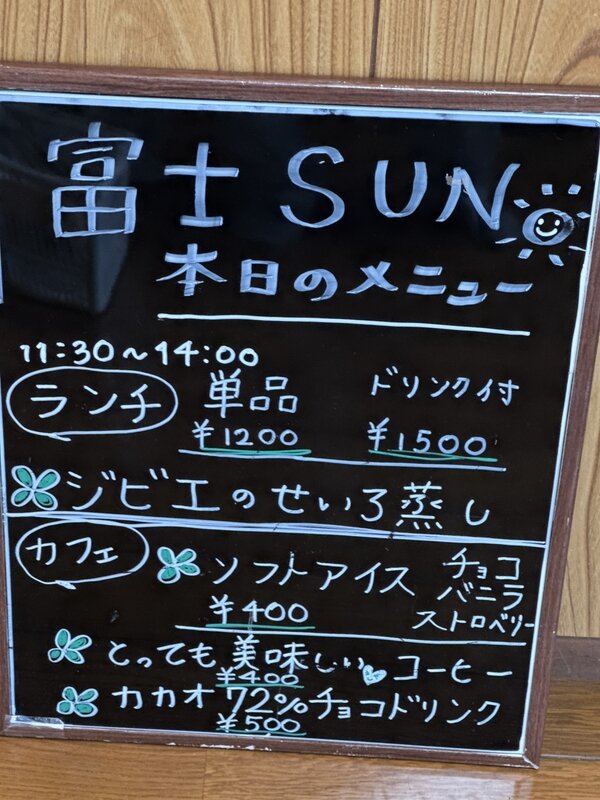 富士SUN
本日のメニュー
11:30〜14:00
ランチ 単品 ドリンク付
¥1200 ¥1500
ジビエのせいろ蒸し
カフェ ソフトアイス チョコ
バニラ
ストロベリー
¥400
とっても美味しい コーヒー
¥400
カカオ72%チョコドリンク
¥500